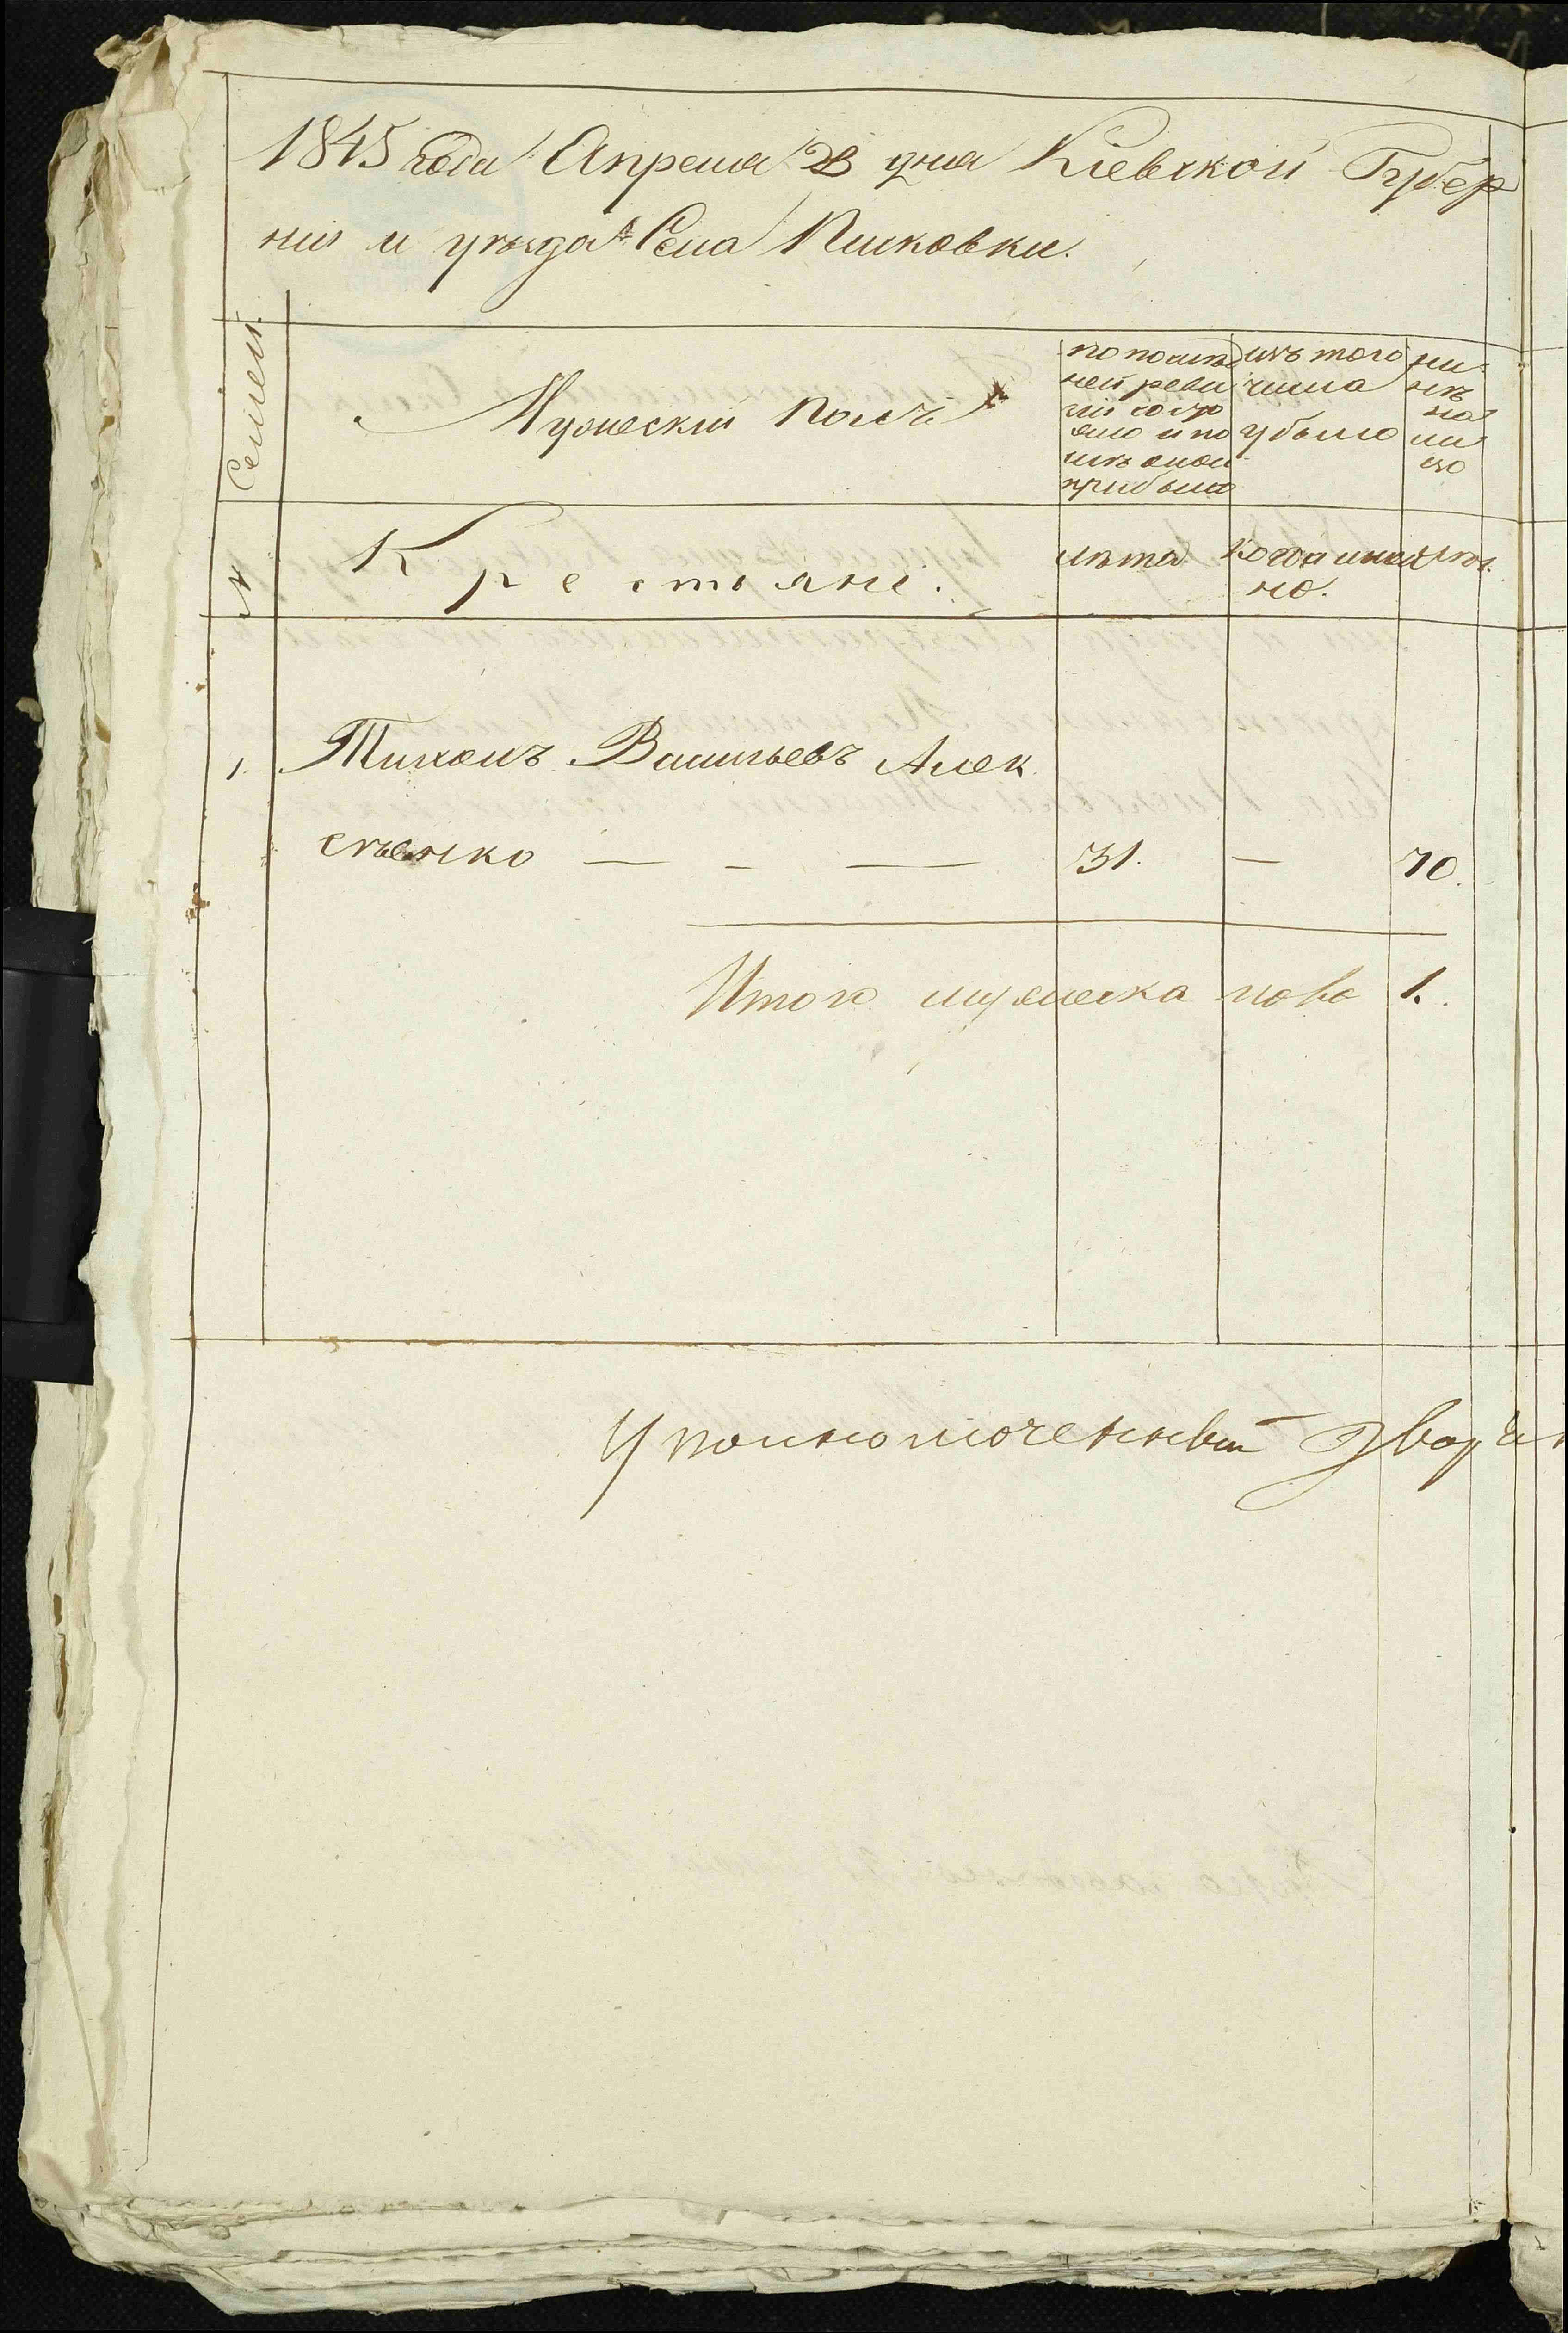 1845 года Апреля 23 дня Кіевской Губер
ніи и уѣзда Села Пилковки.
Семьи.
Мужескій полъ
по послѣд
ней реви
зіи состо
яло и по
слѣ оной
прибыло
изъ того
числа
убыло
ны
нѣ
на
ли
цо
№
Крестьяне.
лѣта
когда имен
но.
лѣт.
1. Тихонъ Васильевъ Алек
сѣенко — - — 31. — 70.
Итого мужеска пола 1.
Уполномоченный Дворян